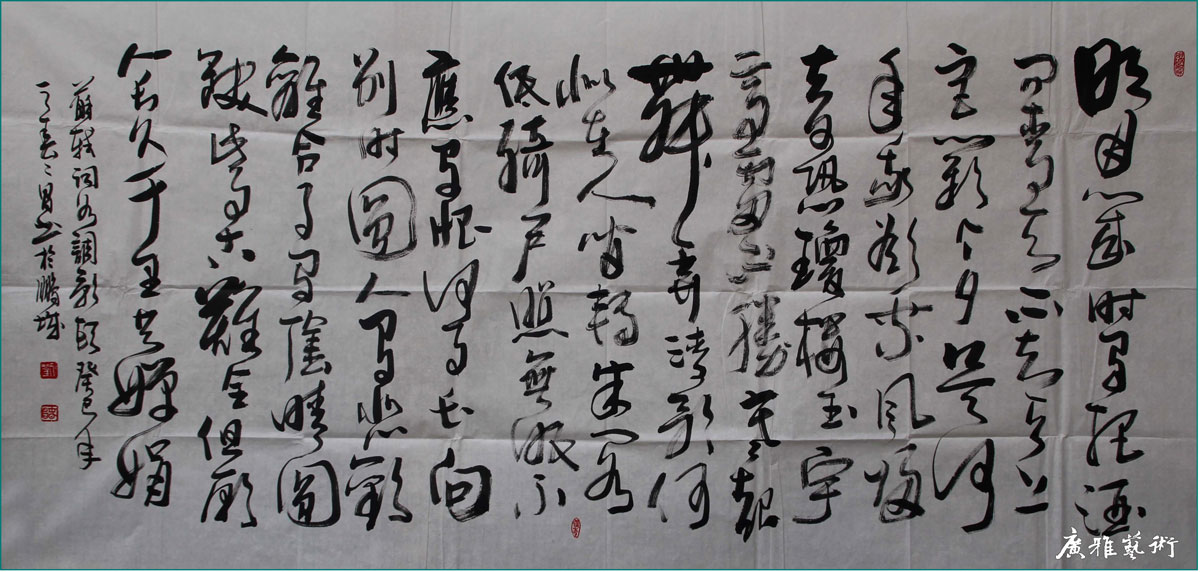 明月幾时有把酒
问青天不知天上
宫阙今夕是何
年我欲乘風歸
去又恐瓊樓玉宇
高處不勝寒起
舞弄清影何
似在人间轉朱阁
低绮户照無眠不
應有恨何事长向
别时圓人有悲歡
離合月有陰晴圓
缺此事古難全但願
人长久千里共嬋娟
蘇軾词水調歌頭 癸巳年
书於鵬城
廣雅藝術